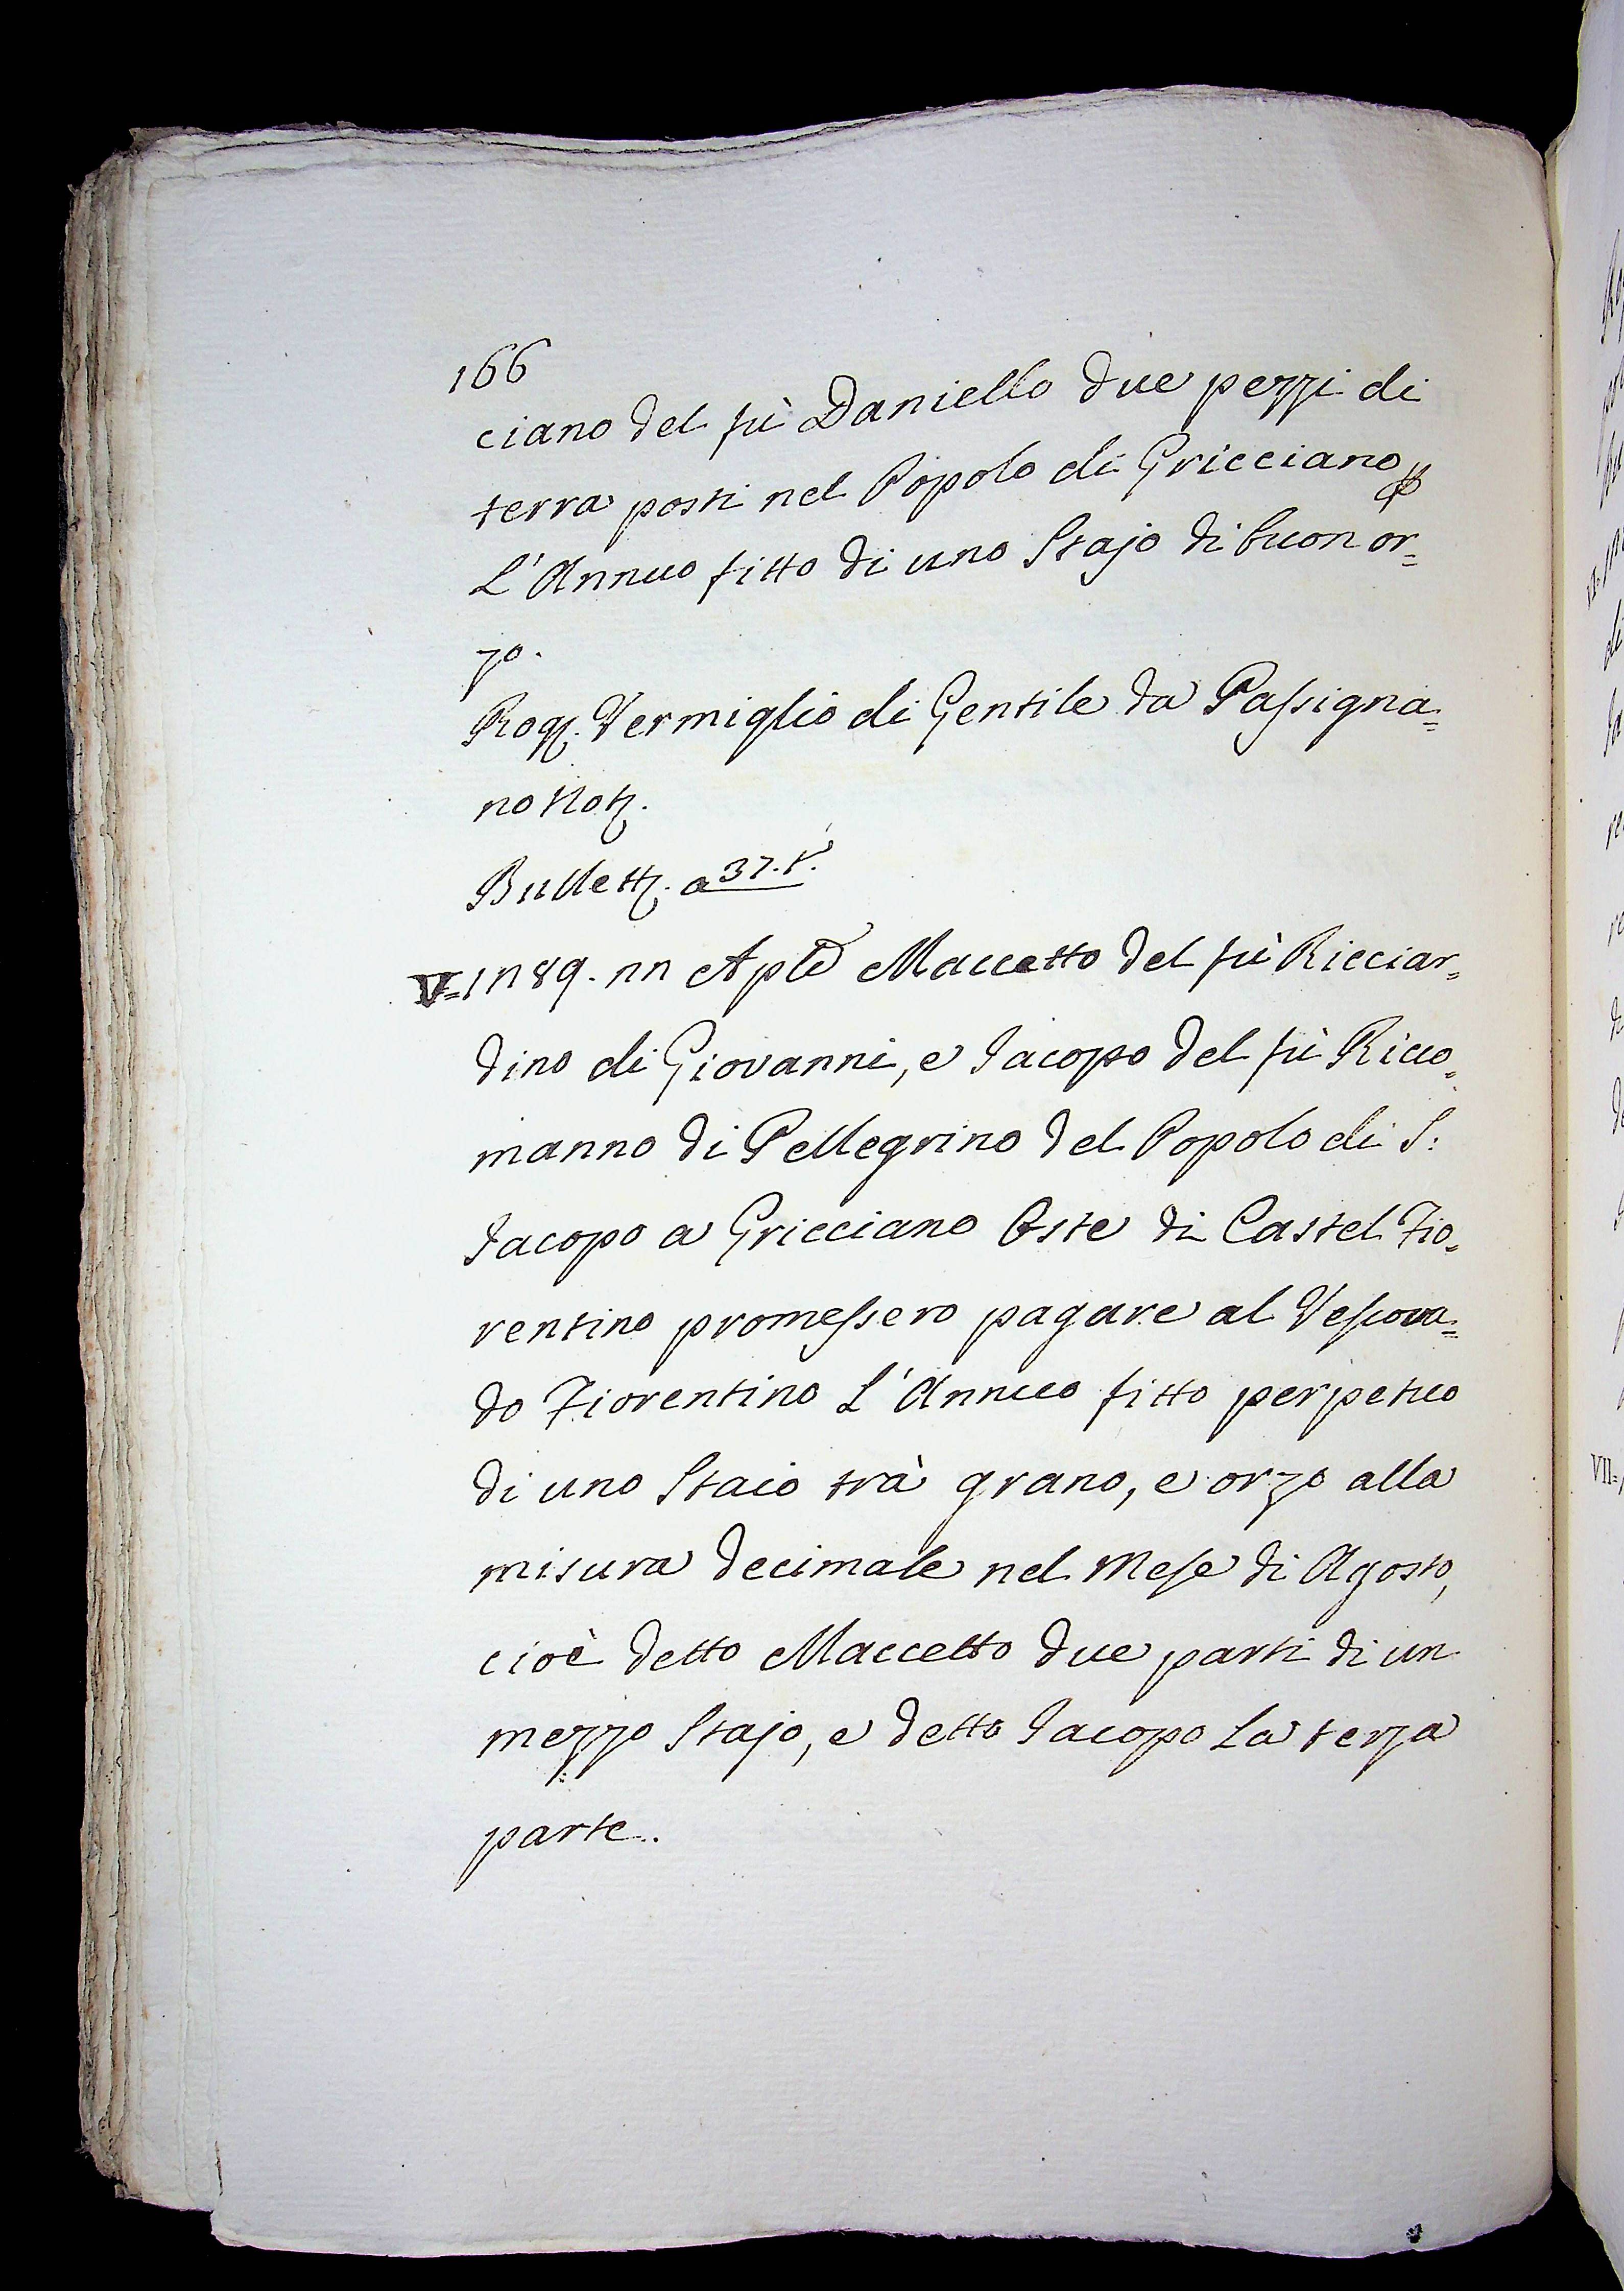 166
ciano del fù Daniello due pezzi di
terra posti nel Popolo di Gricciano
L'Annuo fitto di uno Stajo di buon or=
zo.
Rog. Vermiglio di Gentile da Paſsigna=
no Not.
Bullett. a 37. t.
V= 1289. 22 Aple Maccetto del fù Ricciar=
dino di Giovanni, e Jacopo del fù Ricco=
manno di Pellegrino del Popolo di S:
Jacopo a Gricciano Oste di Castel Fio=
rentino promeſsero pagare al Veſcova=
do Fiorentino L'Annuo fitto perpetuo
di uno Staio trà grano, e orzo alla
misura decimale nel Meſe di Agosto,
cioè detto Maccetto due parti di un
mezzo Stajo, e detto Jacopo La terza
parte..